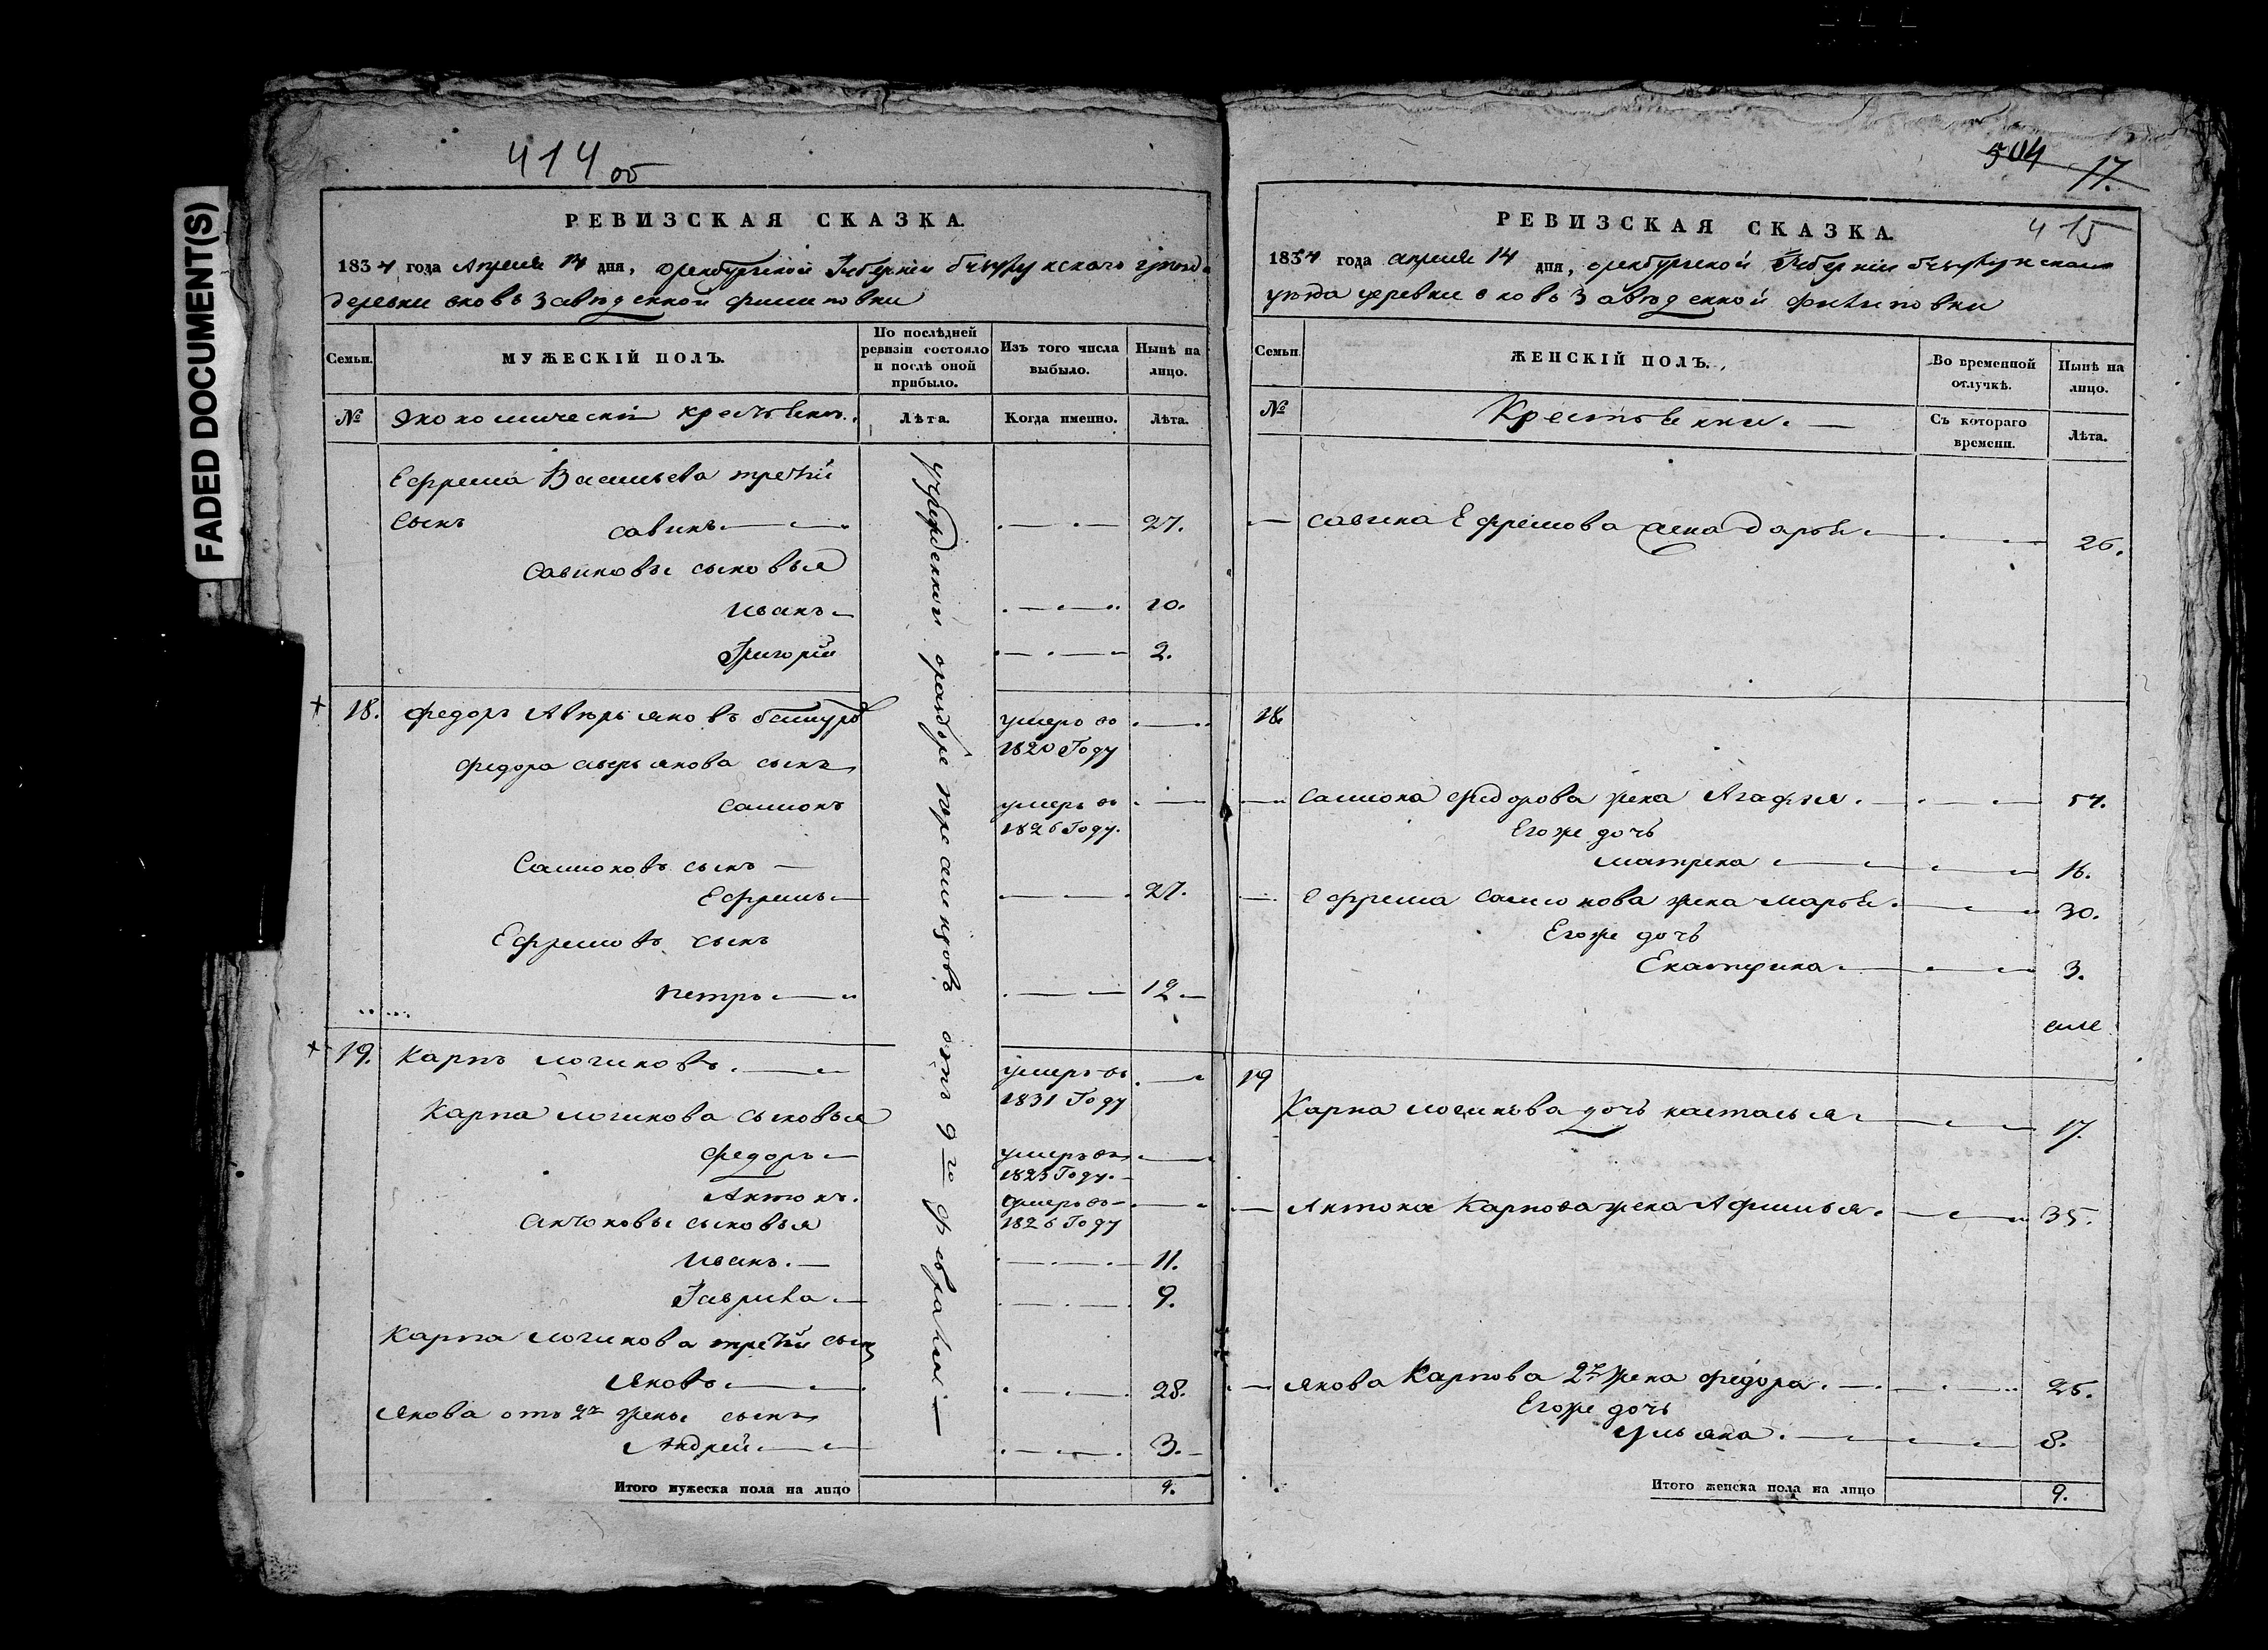 FADED DOCUMENT(S)
414 об
РЕВИЗСКАЯ СКАЗКА.
1834 года Апреля 14 дня, оренбургской Губернии бузулукского уезда
деревни вновь Заведенной филиповки
Семьи.
МУЖЕСКІЙ ПОЛЪ.
По послѣдней ревизіи состояло и послѣ оной прибыло.
Изъ того числа выбыло.
Нынѣ на лицо.
№ Экономический крестьянъ.
Лѣта.
Когда именно.
Лѣта.
Ефрема Васильева третий
сынъ савинъ 27.
Савиновы сыновья
иванъ 10.
Григорий 2.
18. федоръ Аверьяновъ умеръ во 1820 Году
федора аверьянова сынъ
самсонъ умеръ въ 1826 Году.
Самсоновъ сынъ
Ефремъ 27.
Ефремовъ сынъ
петръ 12
19. Карпъ логиновъ. умеръ въ 1831 Году
Карпа логинова сыновья
федоръ умеръ въ 1823 Году.
Антонъ. умеръ въ 1826 Году
антоновы сыновья
иванъ. 11.
Гаврила. 9.
Карпа логинова третий сынъ
яковъ 28.
якова отъ 2й жены сынъ
Андрей 3.
Итого мужеска пола на лицо 9.
504 17.
415
РЕВИЗСКАЯ СКАЗКА.
1834 года апреля 14 дня, оренбургской Губернии бузулукскаго
уезда деревни вновь Заведенной филиповки
Семьи.
ЖЕНСКІЙ ПОЛЪ.
Во временной отлучкѣ.
Нынѣ на лицо.
№ Крестьянки.
Съ котораго времени.
Лѣта.
савина Ефремова жена дарья 26.
18.
самсона федорова жена Агафья. 54.
Егоже дочь
матрена 16.
Ефрема самсонова жена марья. 30.
Егоже дочь
Екатерина 3.
19
Карпа логинова дочь наталья 17.
Антона Карпова жена Афимья. 35.
якова Карпова 2я жена федора. 26.
Егоже дочь
ульяна. 8.
Итого женска пола на лицо 9.